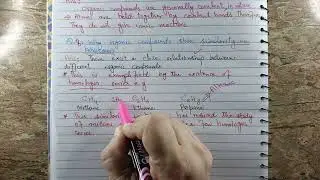 Organic compounds are generally covalent in nature
Atoms are held together by covalent bonds therefore
They do not give ionic reactions
Q: Why organic compounds show similarity in
behaviour?
Ans: There exist a close relationship between
different organic compounds.
This is exemplified by the existence of
homologous series e.g
CH4 C2H6 C3H8 Alkanes
Methane Ethane Propane
This similarity has reduced the study
of million few homologous
series.